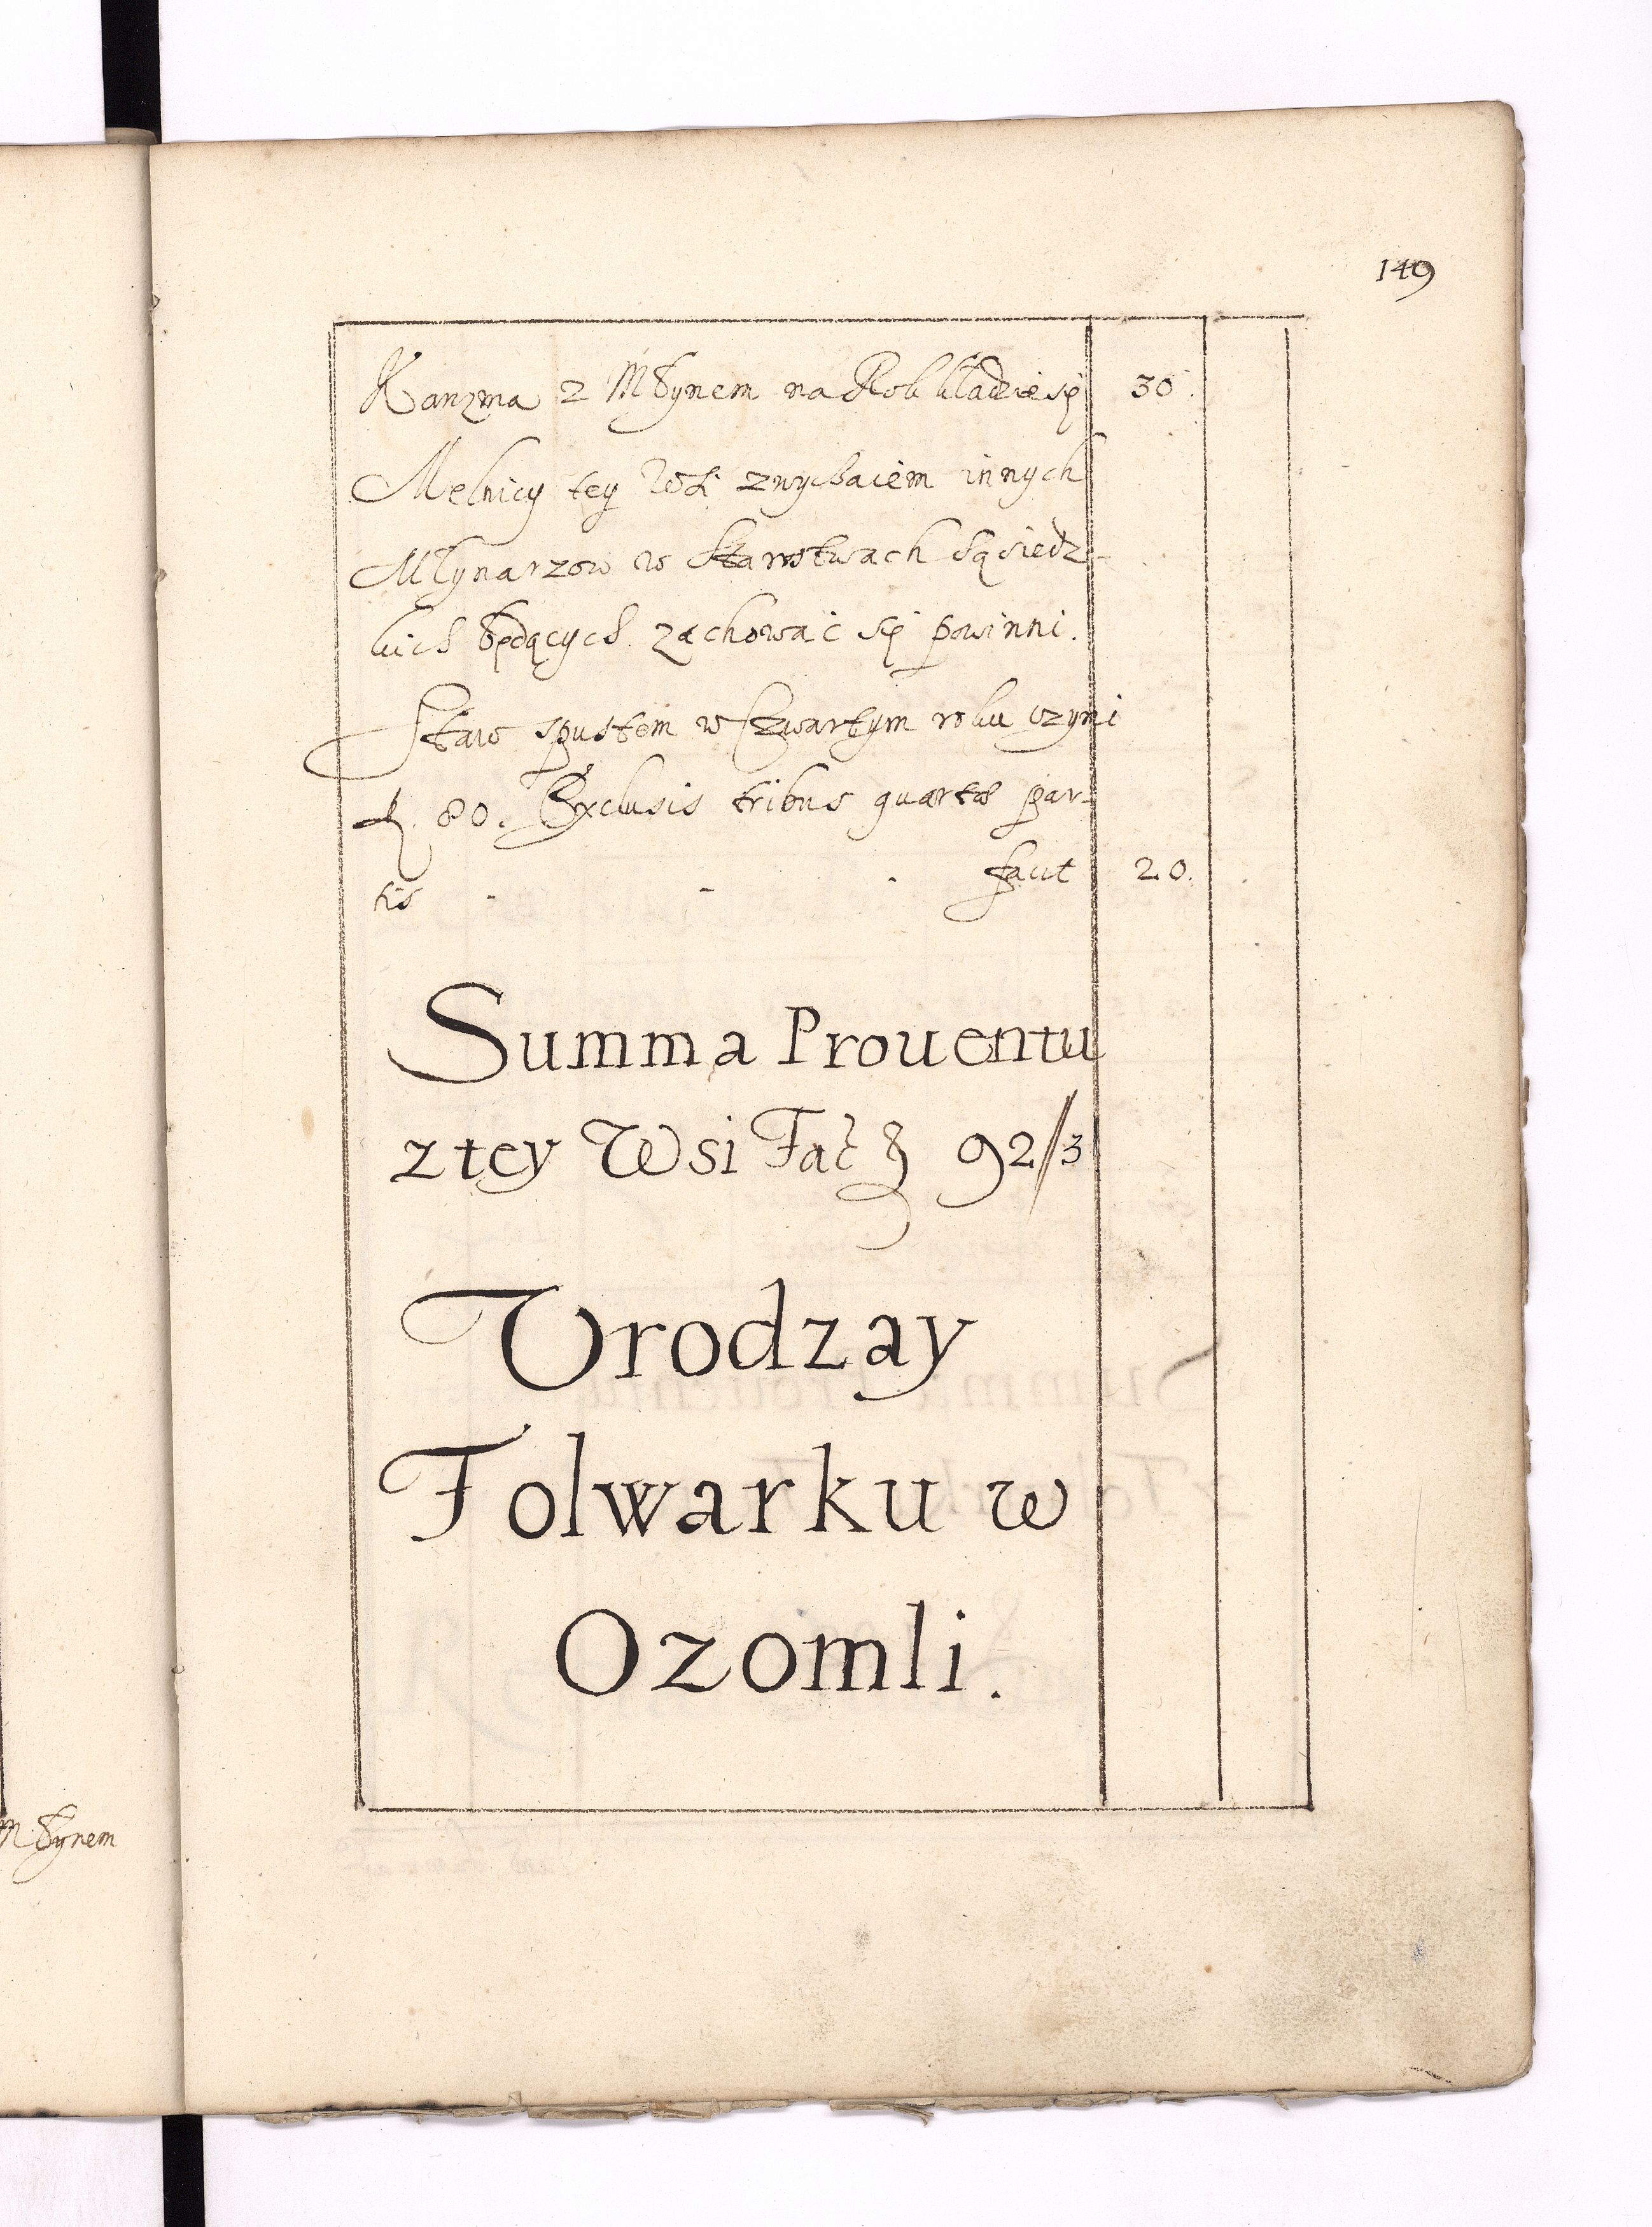 149
Karczma z Młynem na Rok kładzie się 30.
Melnicy tey Wsi zwyczaiem innych
Młynarzow w Starostwach sąsiedz-
kich będących zachować się powinni.
Staw spustem w Czwartym roku czyni
fl. 80. Exclusis tribus quartæ par-
tis - - - facit 20.
Summa Prouentu
z tey Wsi Fac fl 92//3
Vrodzay
Folwarku w
Ozomli.
Młynem